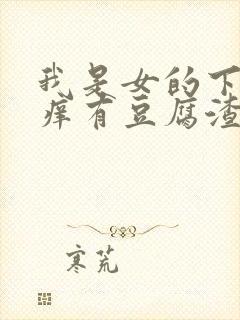 我是女的下
痒有豆腐渣
寒荒